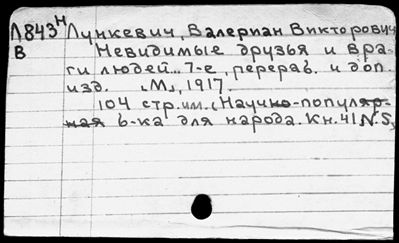 Л843 н Лункевич, Валериан Викторович
В Невидимые друзья и вра-
ги людей... 7-е, перераб. и доп.
изд. „М„, 1917.
104 стр. илл. (Научно-популяр-
ная б-ка для народа. Кн. 41 N.S.